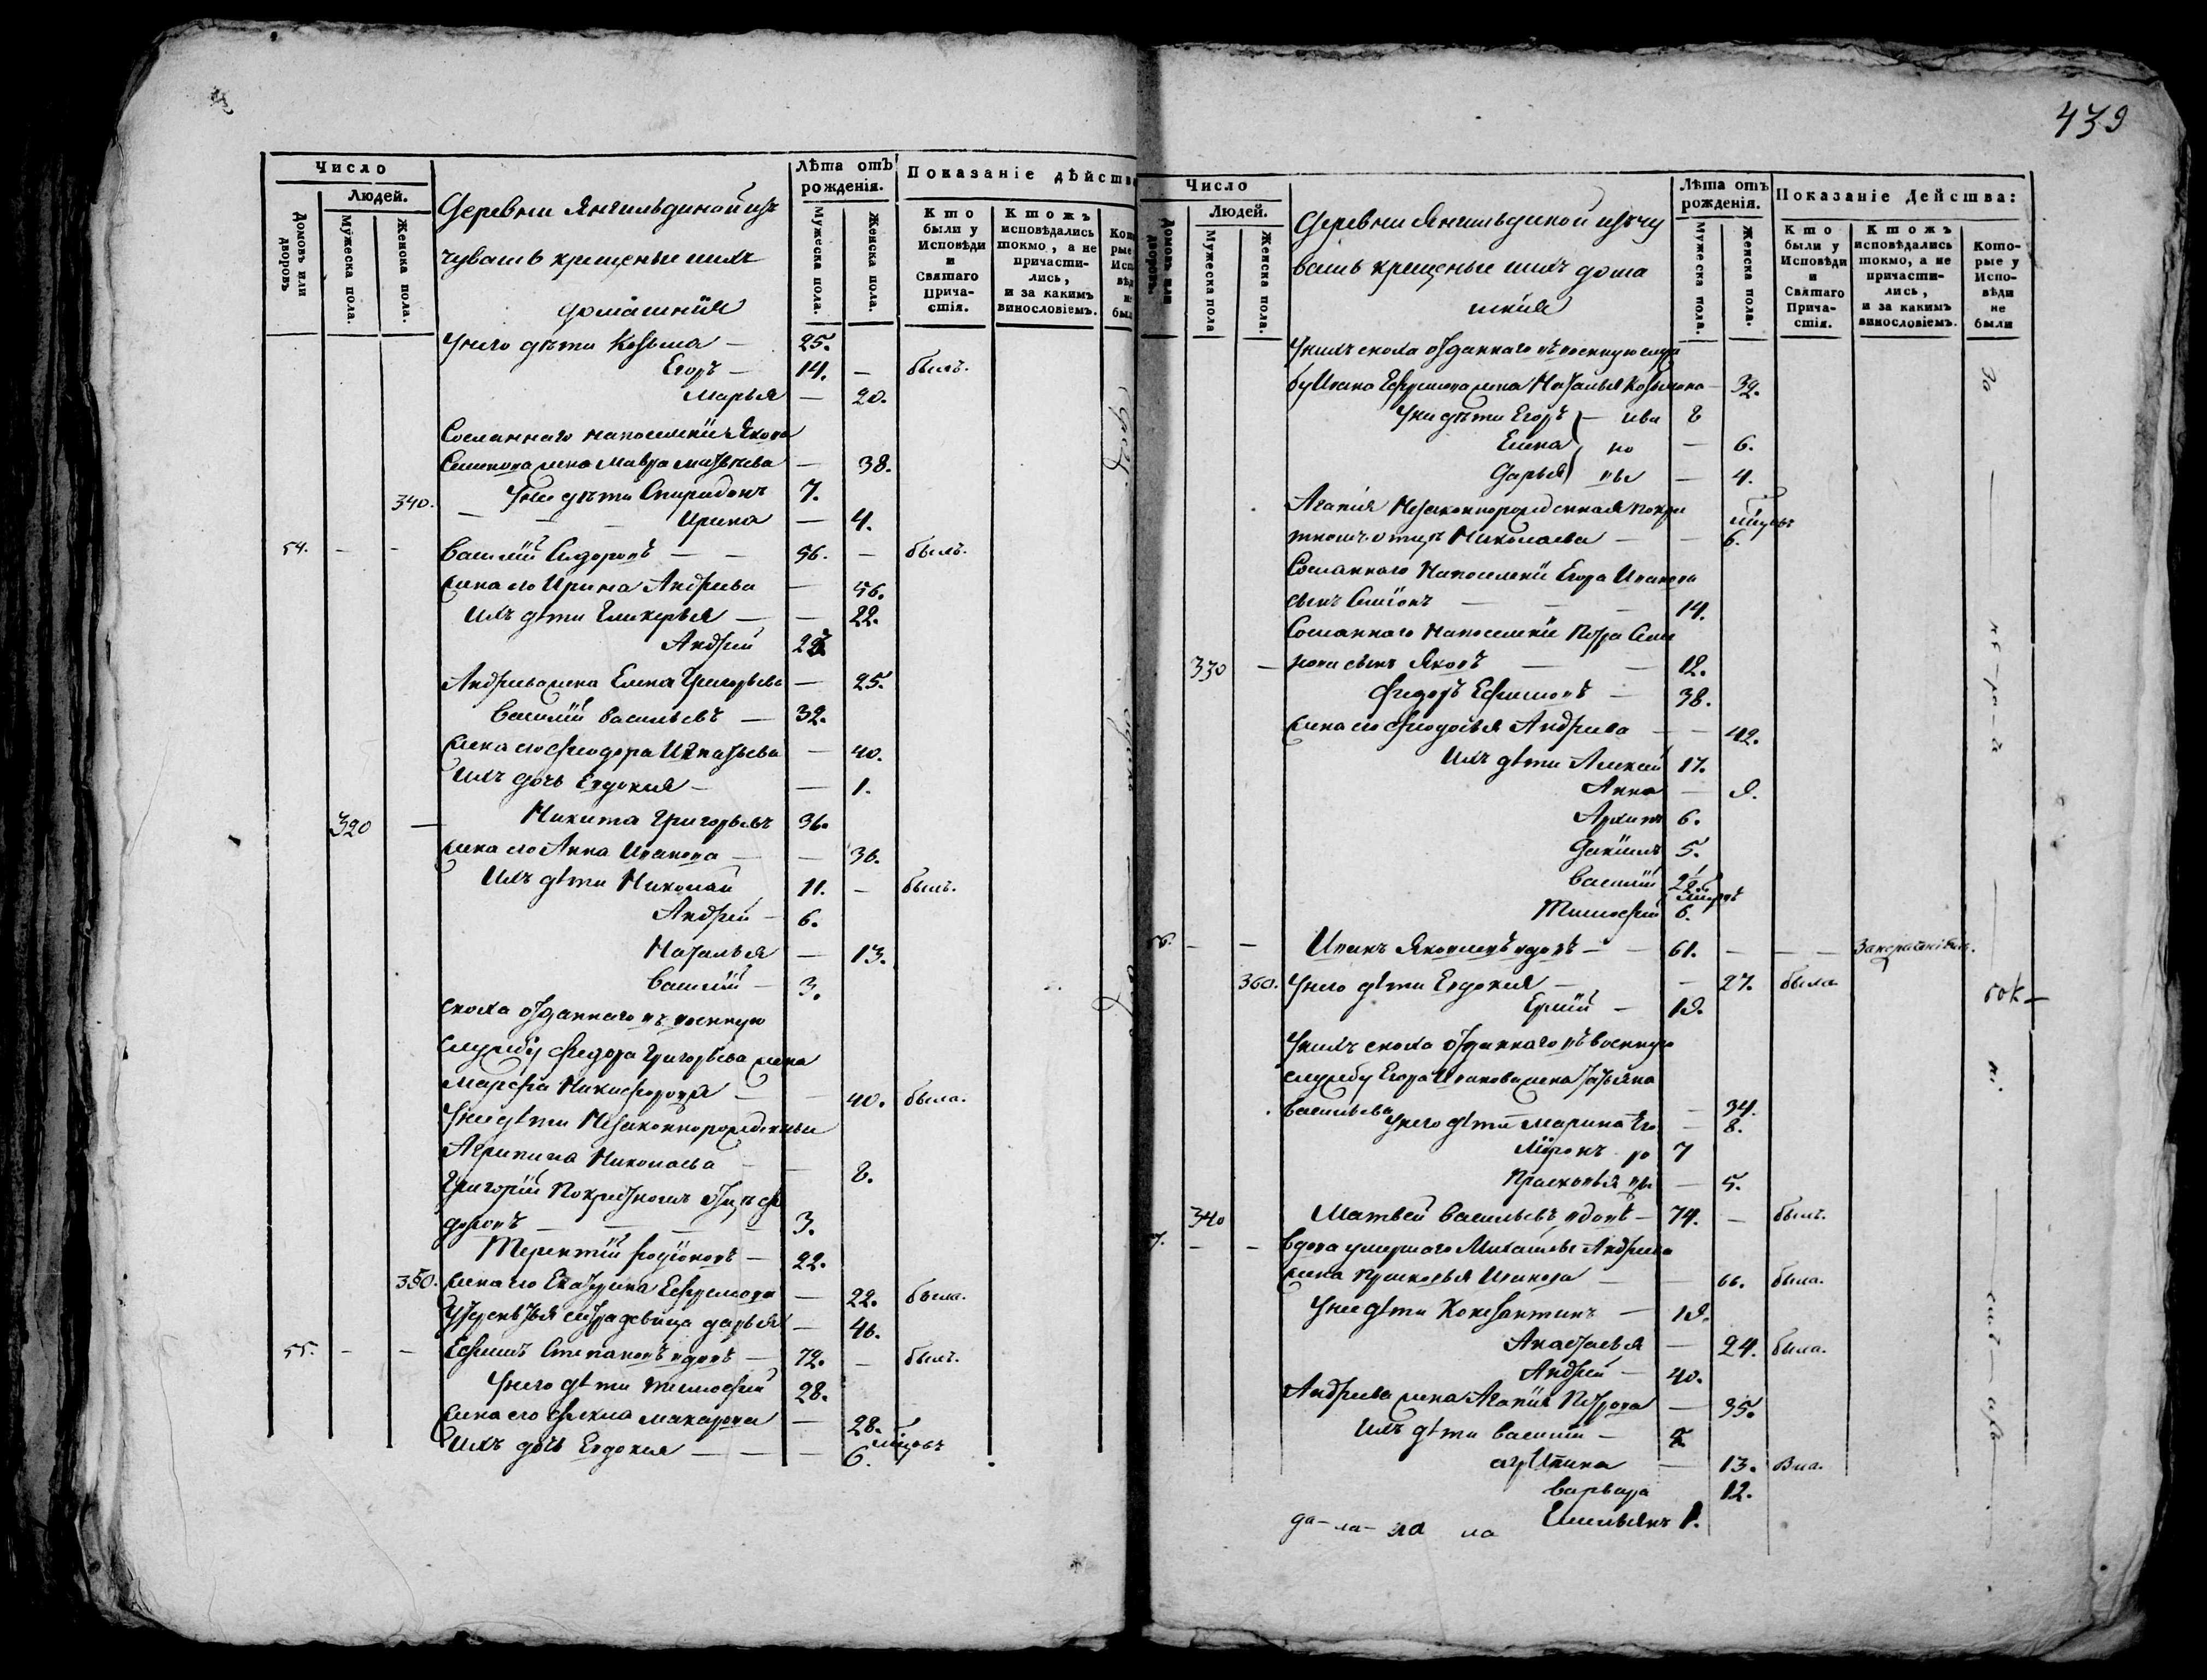 Число
Людей.
Домовъ или дворовъ
Мужеска пола.
Женска пола.
Деревни Янгильдиной изъ
чувашъ крещеные и ихъ
домашнія
Лѣта отъ рожденія.
Мужеска пола.
Женска пола.
Показаніе дѣйства
Кто были у Исповѣди и Святаго Прича-стія.
Ктожъ исповѣдались токмо, а не причасти-лись, и за какимъ винословіемъ.
У него дѣти Козьма — 25.
Егоръ — 14. — былъ.
Марья — 20.
Сосланнаго на поселеніи Якова
Семенова жена Мавра Матвѣева — 38.
340. У нее дѣти Спиридонъ 7.
Ирина — 4.
54. - - Василій Сидоровъ — — 56. — былъ.
жена его Ирина Андреева — 56.
Ихъ дѣти Гликерья — — 22.
Андрей
Андреева жена Елена Григорьева — 25.
Василій Васильевъ — 32.
жена его Феодора Игнатьева — 40.
Ихъ дочь Евдокия — — 1.
320 — Никита Григорьевъ 36.
жена его Анна Иванова — — 36.
Ихъ дѣти Николай 11. — былъ.
Андрей — 6.
Наталья — 13.
Василій — 3.
сноха отданнаго въ военную
службу Федора Григорьева жена
Марфа Никифорова — — 40. была.
У нее дѣти незаконнорожденныи
Агрипина Николаева — — 8.
Григорій по крестномъ отцѣ Фе
доровъ — — — — 3.
Терентій Родіоновъ — 22.
350. жена его Екатерина Ефремова — 22. была.
сестра девица Дарья — 46.
55. - - Ефимъ Степановъ вдовъ — 72. — былъ.
У него дѣти Тимофей 28.
жена его Фекла Макарова — 28.
Ихъ дочь Евдокия — — — 6. мѣсцовъ
439
Число
Людей.
Домовъ или дворовъ.
Мужеска пола
Женска пола.
Деревни Янгильдиной изъ чу
вашъ крещеные и ихъ дома
шнія
Лѣта отъ рожденія.
Мужеска пола.
Женска пола.
Показаніе Дейсшва:
Кто были у Исповѣди и Святаго Прича-стія.
Ктожъ исповѣдались токмо, а не причасти-лись, и за какимъ винословіемъ.
Кото-рые у Испо-вѣди не были
У нихъ сноха отданнаго въ военную служ
бу Ивана Ефремова жена Наталья Козьмина — 32.
У ни дѣти Егоръ — ива 8
Елена но — 6.
Дарья вы — 4.
Агапія незаконнорожденная по кре
стномъ отцѣ Николаева — — 6. мѣсцовъ
Сосланнаго на поселеніи Егора Иванова
сынъ Симіонъ — — — 14.
Сосланнаго на поселеніи Петра Семе
330 — нова сынъ Яковъ — — 12.
Федоръ Ефимовъ — 38.
жена его Феодосья Андреева — — 42.
Ихъ дѣти Алексей 17.
Анна — 9.
Архипъ 6.
Даніилъ 5.
Василій 2½
Тимофей 6. мѣсцовъ
56. — — Иванъ Яковлевъ вдовъ — — 61. — — —
360. У него дѣти Евдокия — — 27. была
Ермій — 19.
У нихъ сноха отданнаго въ военную
службу Егора Иванова жена Татьяна
Васильева — 34.
У него дѣти Марина Его — 8.
Міронъ ро 7
Прасковья вы — 5.
340 Матвей Васильевъ вдовъ — 74. — былъ.
7. — — Вдова умершаго Михайлы Андреева
жена Прасковья Иванова — — 66. была.
У нее дѣти Константинъ — 19.
Анастасья — 24. была.
Андрей — 40.
Андреева жена Агапія Петрова — 35.
Ихъ дѣти Василій —
агрипина — 13.
Варвара 12.
Емильянъ 1.
да — ла — ла ла